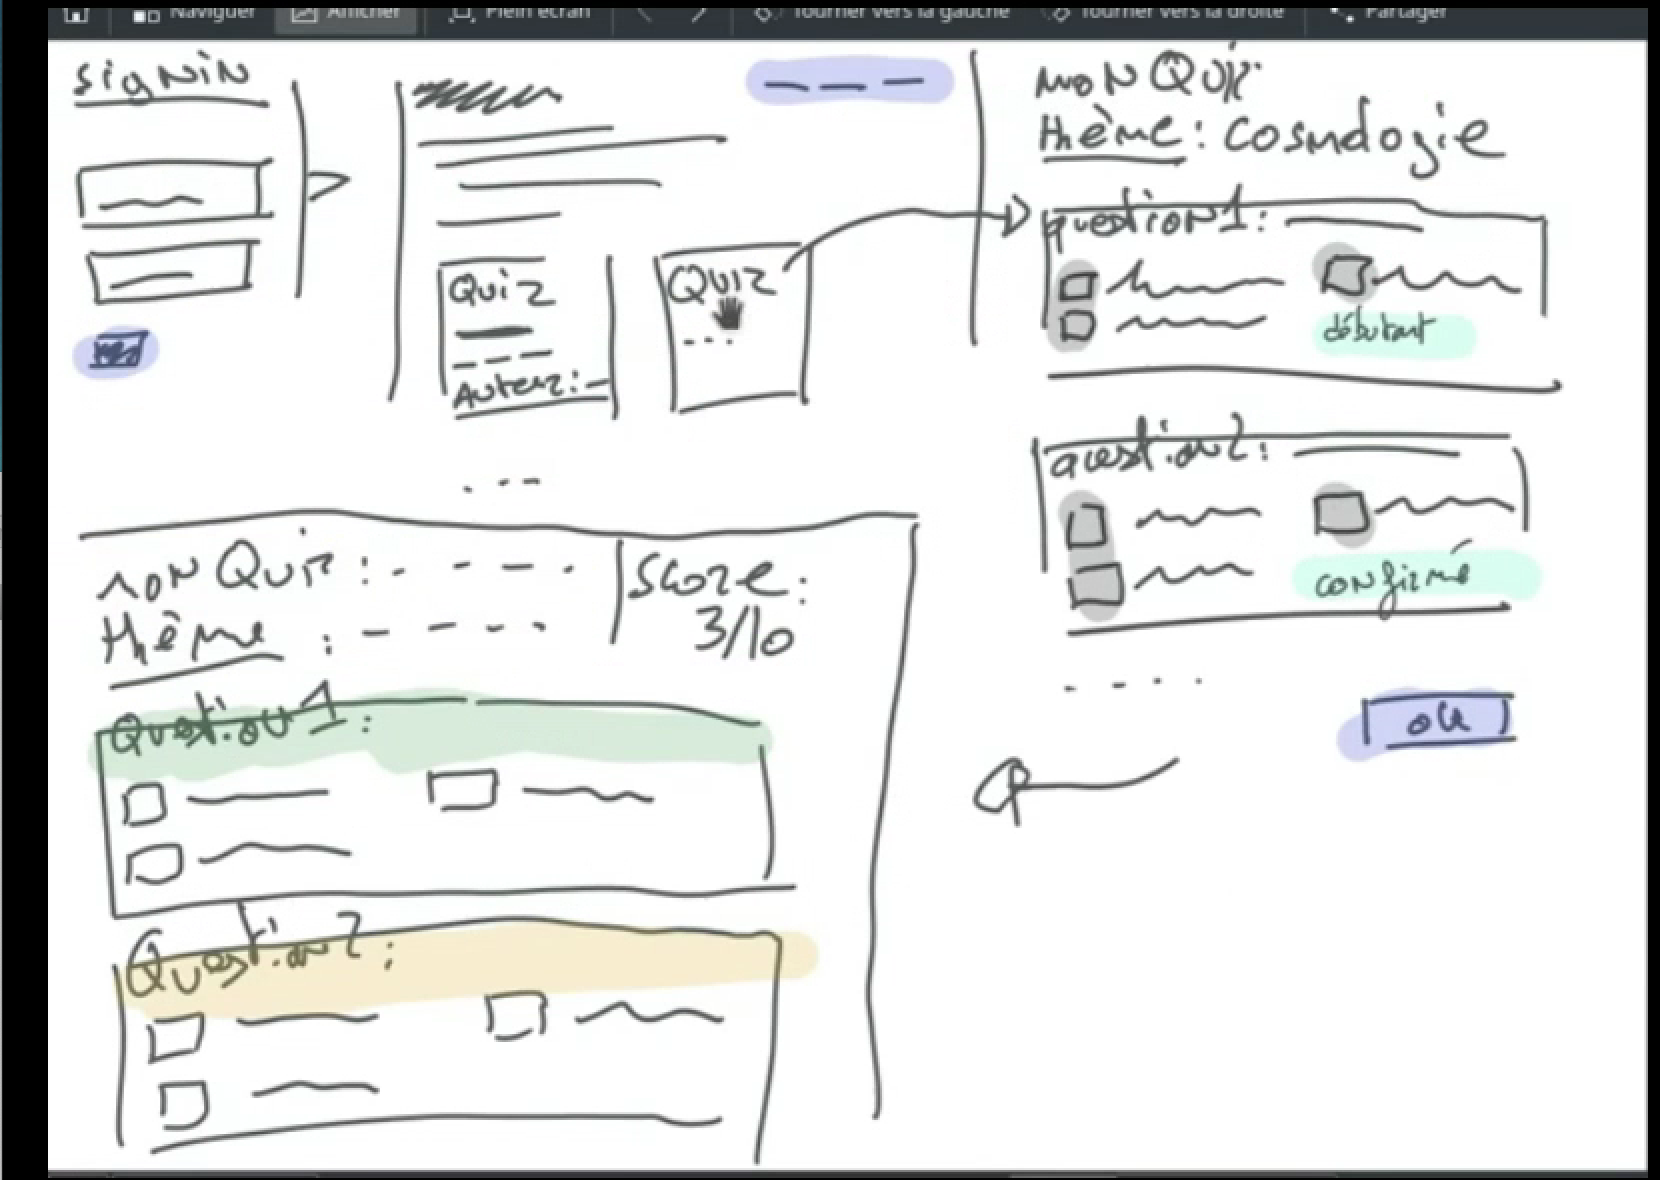 Naviguer Afficher Plein écran Tourner vers la gauche Tourner vers la droite Partager
signin
Quiz
Auteur:
Quiz
...
mon Quiz
thème: Cosmologie
question 1:
débutant
question 2:
confirmé
ok
mon Quiz :
thème :
Score:
3/10
Question 1:
Question 2: